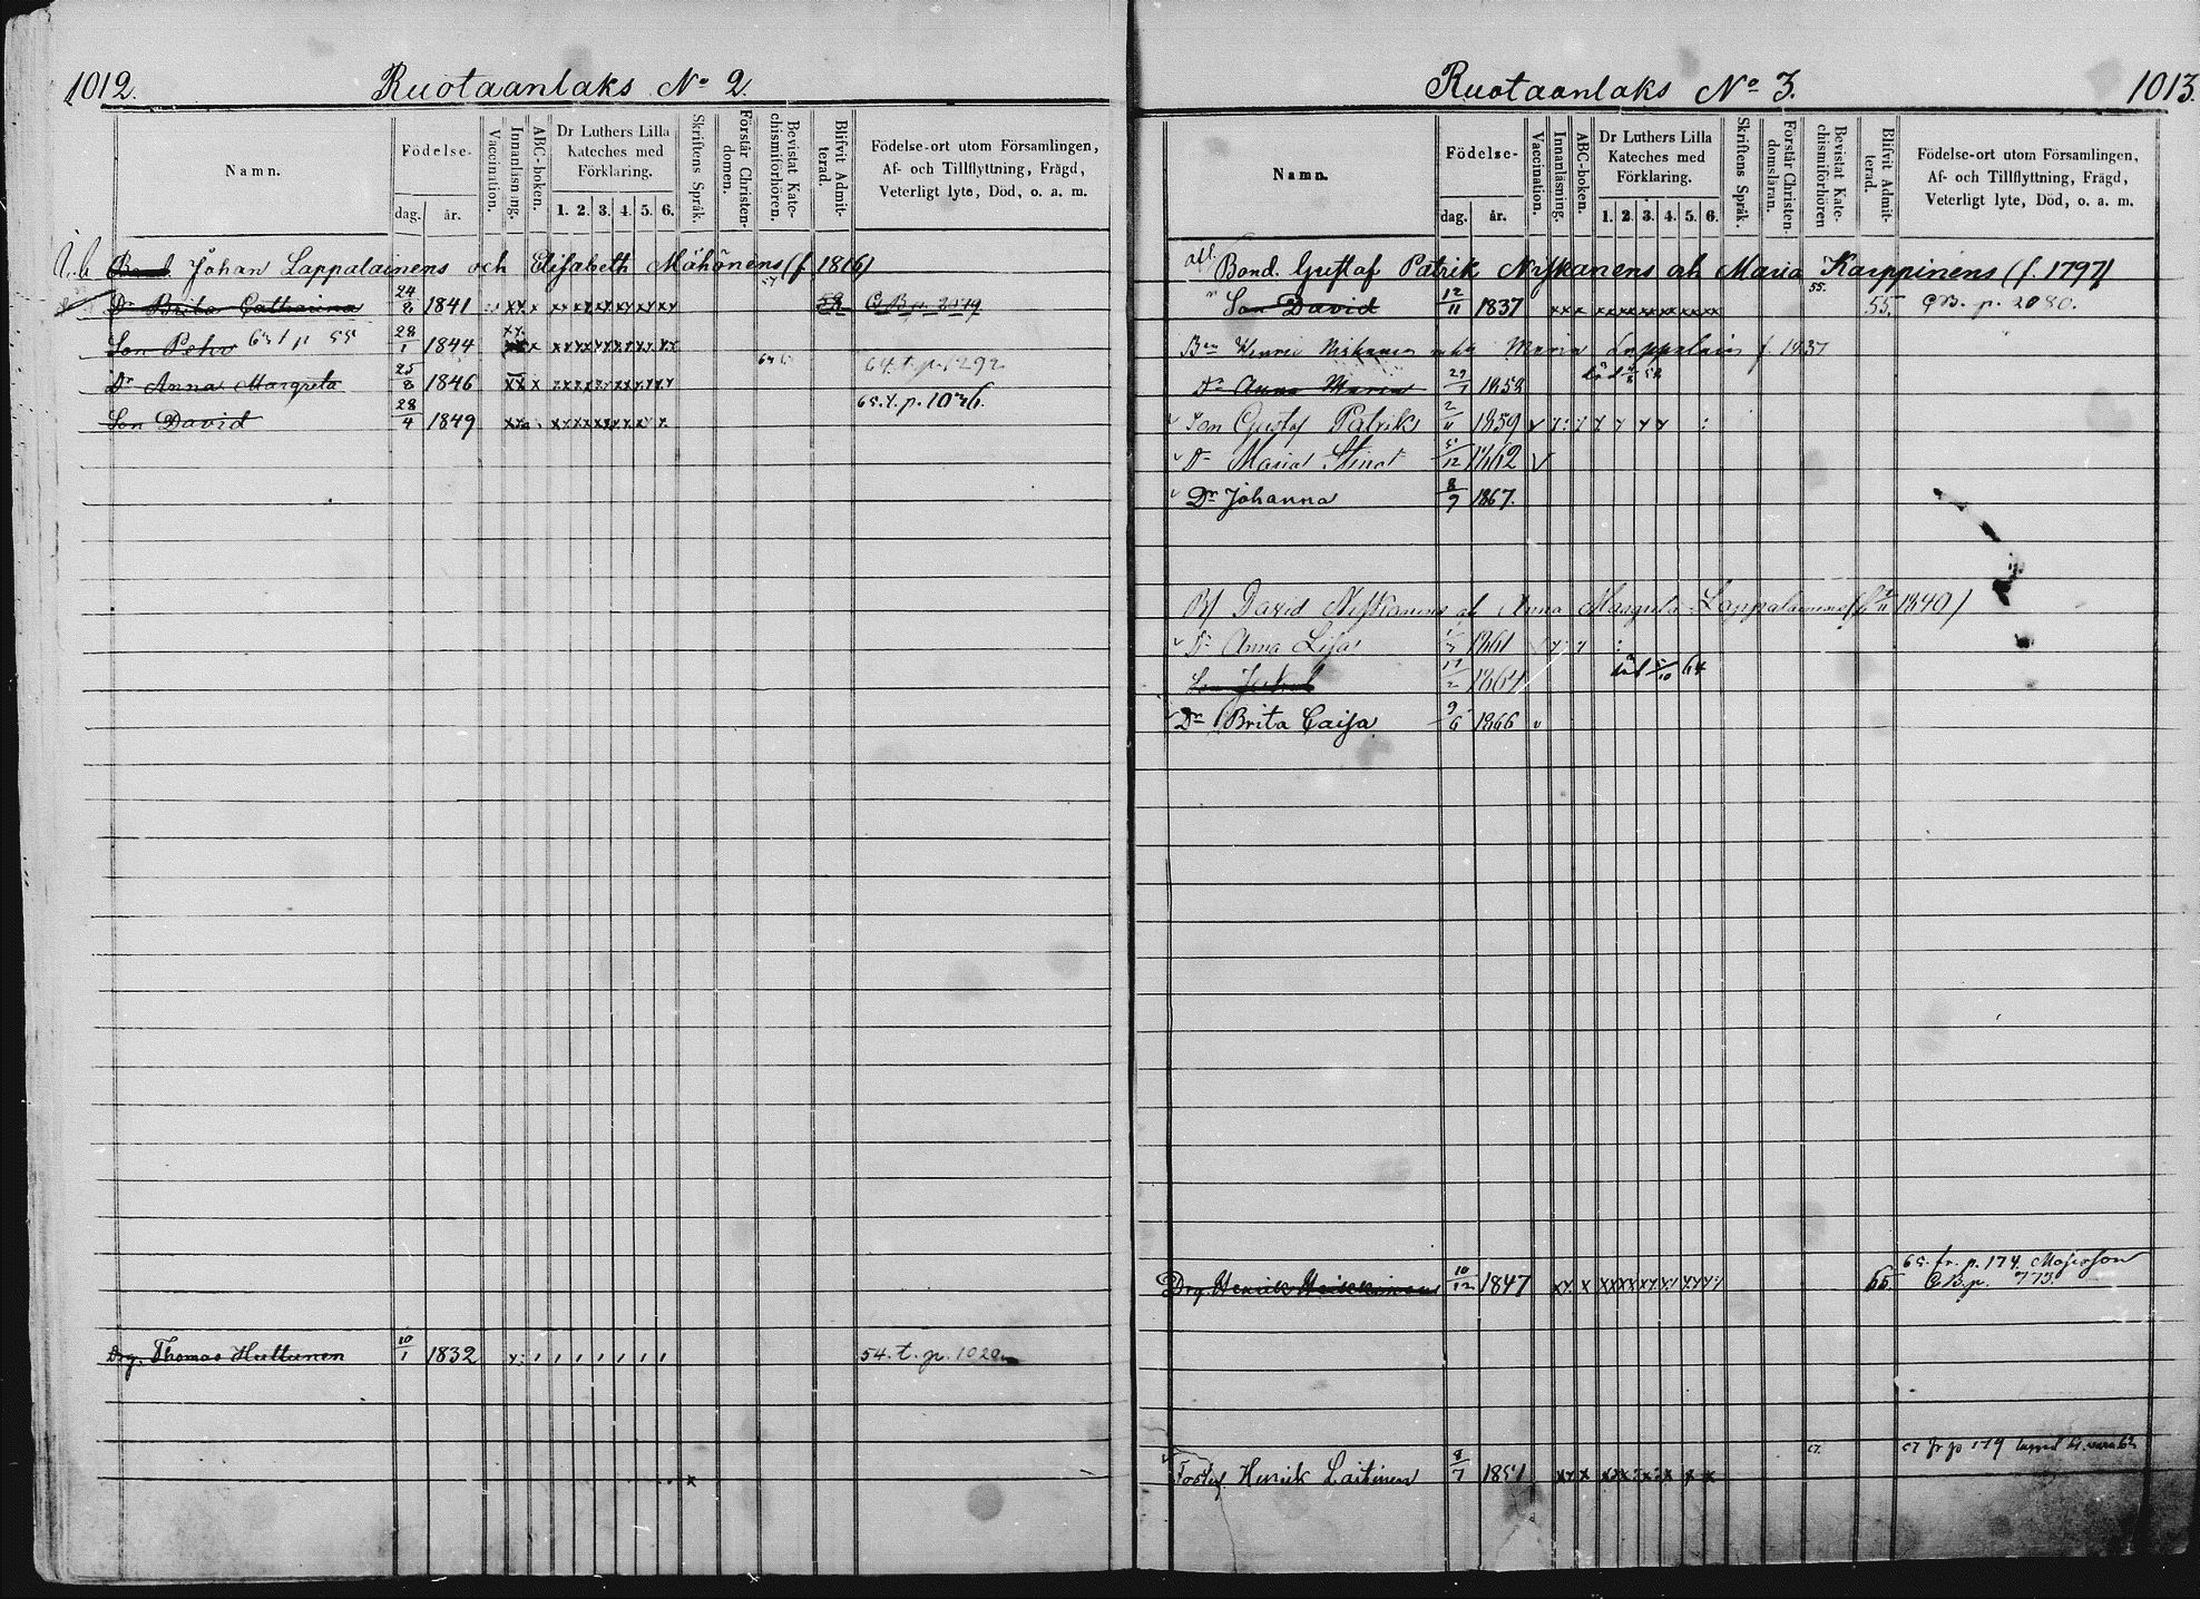 1012.
Ruotaanlaks No 2.
Namn.
Födelse-
dag. år.
Vaccination.
Innanläsning.
ABC-boken.
Dr Luthers Lilla Kateches med Förklaring.
1. 2. 3. 4. 5. 6.
Skriftens Språk.
Förstår Christendomen.
Bevistat Katechismiförhören.
Blifvit Admitterad.
Födelse-ort utom Församlingen,
Af- och Tillflyttning, Frägd,
Veterligt lyte, Död, o. a. m.
Bond. Johan Lappalainens och Elisabeth Mähönens (f. 1816)
Dr Brita Catharina 24/8 1841 58
Son Pehr 28/1 1844
Dr Anna Margreta 25/8 1846 64. t. p. 1292
Son David 28/4 1849 65. t. p. 1036.
Drg. Thomas Huttunen 10/1 1832 54. t. p.
1013.
Ruotaanlaks No 3.
Namn.
Födelse-
dag. år.
Vaccination.
Innanläsning.
ABC-boken.
Dr Luthers Lilla Kateches med Förklaring.
1. 2. 3. 4. 5. 6.
Skriftens Språk.
Förstår Christendomsläran.
Bevistat Katechismiförhören
Blifvit Admitterad.
Födelse-ort utom Församlingen,
Af- och Tillflyttning, Frägd,
Veterligt lyte, Död, o. a. m.
afl. Bond. Gustaf Patrik Niskanens ah Maria Karppinens (f. 1797)
Son David 12/11 1837 55. 55. C.B. p. 2080.
Bn Henric Niskanen Maria Lappalain f. 1837
Dr Anna Maria 1858 död
Son Gustaf Patrik 2/11 1859
Dr Maria Stina 1862
Dr Johanna 8/9 1867.
David Niskanens Anna Margreta Lappalainens 1840)
Dr Anna Lisa 1861
Son 1864 död 64
Dr Brita Caisa 9/6 1866
Drg. Henrik 10/12 1847 65. 65. fr. p. 174.
C.B. p. 773.
Henrik Laitinen 1851